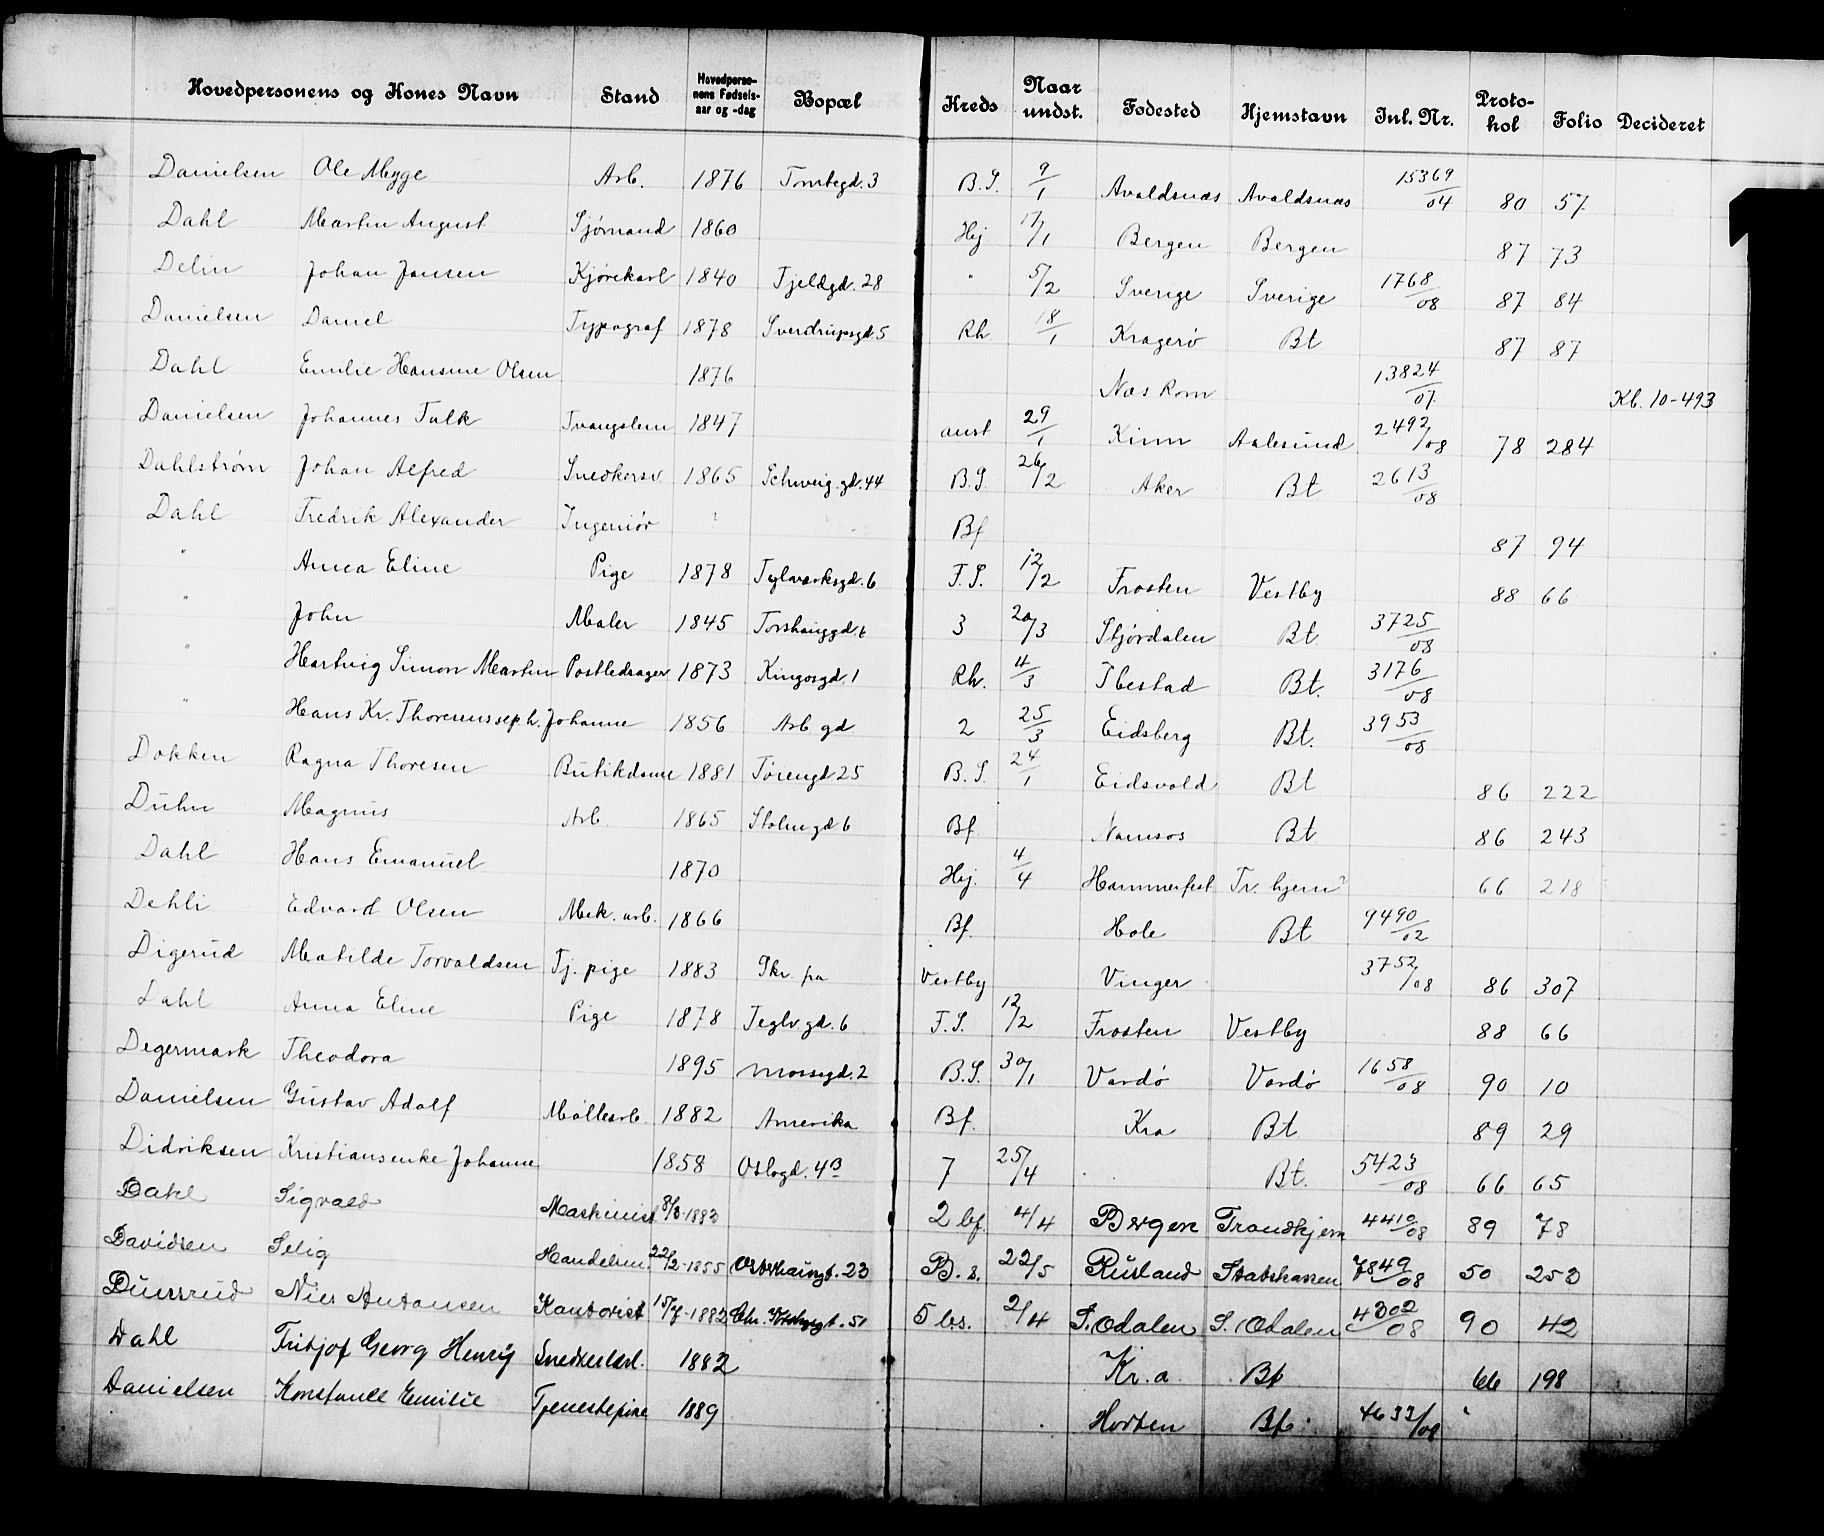 Hovedpersonens og Kones Navn Stand Hovedpersonens Fødsels-aar og -dag Bopæl Kreds Naar undst. Fødested Hjemstavn Inl. Nr. Protokol Folio Decideret
Danielsen Ole Mygge Arb. 1876 Tomtegd. 3 B.S. 9/1 Avaldsnæs Avaldsnæs 15369/04 80 57
Dahl Martin August Sjømand 1860 Hej 17/1 Bergen Bergen 87 73
Delin Johan Jansen Kjørekarl 1840 Fjeldgd. 28 " 5/2 Sverige Sverige 1768/08 87 84
Danielsen Daniel Typograf 1878 Sverdrupsgd 5 Rh 18/1 Kragerø Bt 87 87
Dahl Emilie Hansine Olsen 1876 Næs Rom 13824/07 Kb. 10-493
Danielsen Johannes Falk Tvangslem 1847 anst 29/1 Kinn Aalesund 2492/08 78 284
Dahlstrøm Johan Alfred Snedkersv. 1865 Schweig.gd. 44 B.S. 26/2 Aker Bt 2613/08
Dahl Fredrik Alexander Ingeniør Bf 87 94
" Anna Eline Pige 1878 Teglverksgd. 6 F.S. 12/2 Frosten Vestby 88 66
" John Maler 1845 Torshauggd. 6 3 20/3 Stjørdalen Bt. 3725/08
" Hartvig Simon Martin Postledsager 1873 Kingosgd. 1 Rh. 4/3 Ibestad Bt. 3176/08
" Hans Kr. Thoresens seph. Johanne 1856 Arb gd 2 25/3 Eidsberg Bt. 3953/08
Dokken Ragna Thoresen Butikdame 1881 Tøiengd 25 B.S. 24/1 Eidsvold Bt 86 222
Duhn Magnus Arb. 1865 Stolmgd 6 Bf. Namsos Bt 86 243
Dahl Hans Emanuel 1870 Hej. 4/4 Hammerfest Tr. hjem? 66 218
Dehli Edvard Olsen Mek. arb. 1866 Bf. Hole Bt 9490/02
Digerud Matilde Torvaldsen Tj. pige 1883 Skr. fra Vestby Vinger 3752/08 86 307
Dahl Anna Eline Pige 1878 Teglv.gd. 6 F.S. 12/2 Frosten Vestby 88 66
Degermark Theodora 1895 Mossegd. 2 B.S. 30/1 Vardø Vardø 1658/08 90 10
Danielsen Gustav Adolf Møllearb. 1882 Amerika Bf. Kra Bt 89 29
Didriksen Kristiansenke Johanne 1858 Oslogd. 4B 7 25/4 Bt. 5423/08 66 65
Dahl Sigvald Maskinist 8/3-1883 2 bf. 4/4 Bergen Trondhjem 4410/08 89 78
Davidsen Selig Handelsm. 22/2-1855 23 B. s. 22/5 Rusland Statskassen 7849/08 50 253
Dunsrud Nils Antonsen Kontorist 15/7-1882 51 5 bs. 2/4 S. Odalen S. Odalen 4302/08 90 42
Dahl Fritjof Georg Henry 1882 Kr.a Bt 66 198
Danielsen Konstance Emilie Tjenestepike 1889 Horten Bf. 4633/08